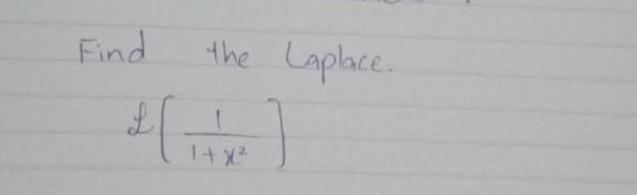 Find the Laplace.
ℒ[1/(1+x²)]